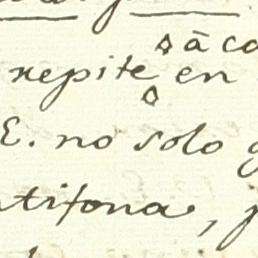 à co
repite en
E. no solo
tifona,